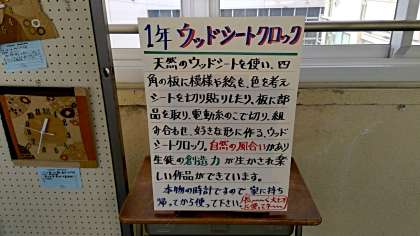 1年 ウッドシートクロック
天然のウッドシートを使い、四
角の板に模様や絵を、色を考え
シートを切り貼りしたり、板に部
品を取り、電動糸のこで切り、組
み合わせ、好きな形に作る、ウッド
シートクロック。自然の風合いがあり
生徒の創造力が生かされ楽
しい作品ができています。
本物の時計ですので、家に持ち
帰ってから使って下さい。